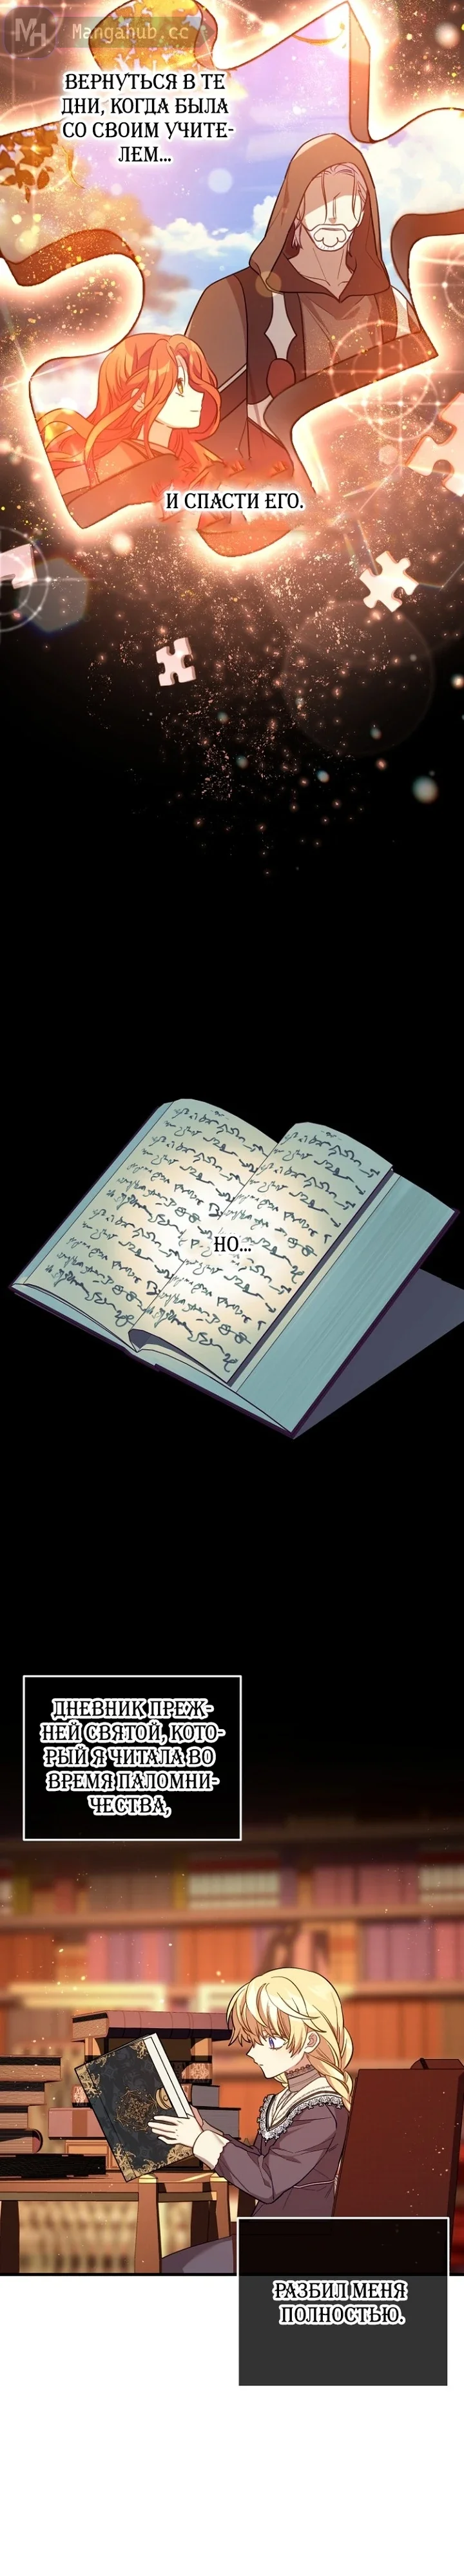 MH Mangahub.cc
ВЕРНУТЬСЯ В ТЕ
ДНИ, КОГДА БЫЛА
СО СВОИМ УЧИТЕ-
ЛЕМ...
И СПАСТИ ЕГО.
НО...
ДНЕВНИК ПРЕЖ-
НЕЙ СВЯТОЙ, КОТО-
РЫЙ Я ЧИТАЛА ВО
ВРЕМЯ ПАЛОМНИ-
ЧЕСТВА,
РАЗБИЛ МЕНЯ
ПОЛНОСТЬЮ.